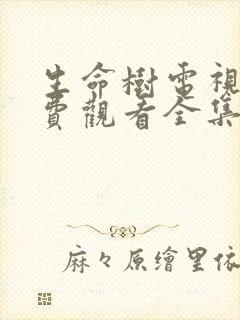 生命樹電視
費觀看全集
麻々原繪里依